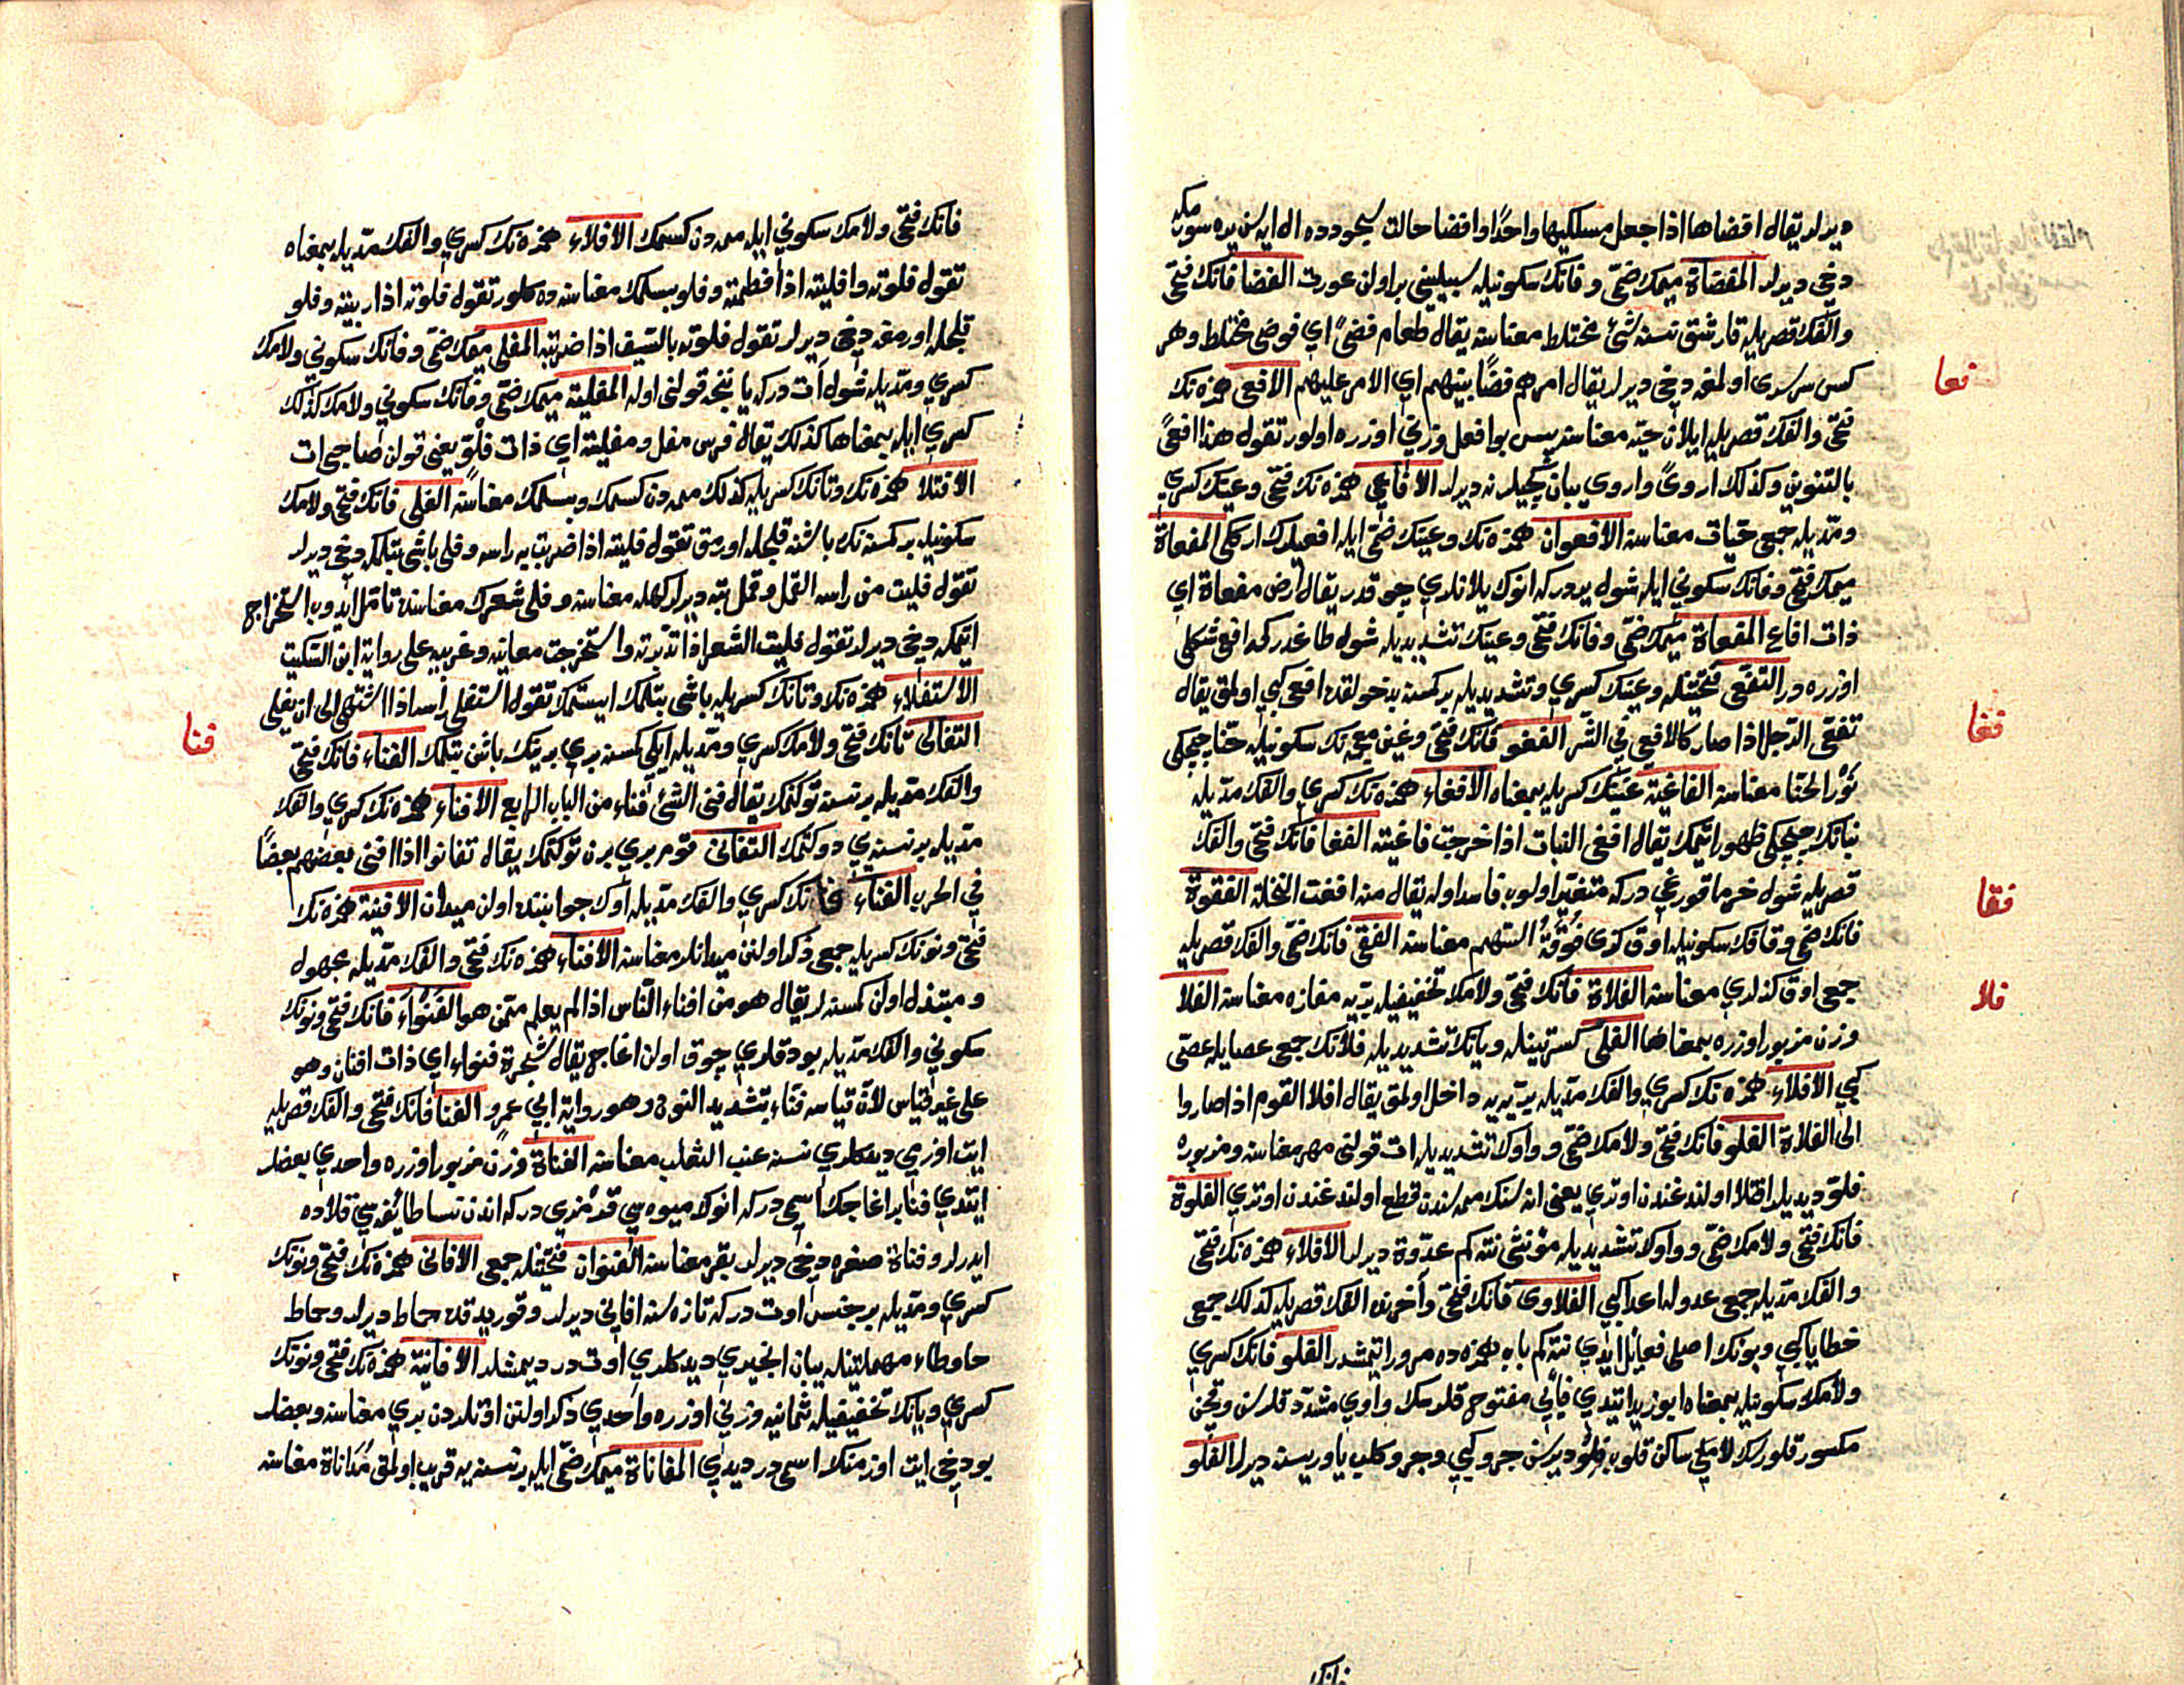 ديرلر يقال افضاها اذا جعل مسلكيها واحدًا وافضا حالت سجودده ال اياسن يره سورمكه
دخى ديرلر المفضاة ميمك ضمّى و فانك سكونيله سبيلينى بر اولن عورت الفضا فانك فتحى
والفك قصريله قارشق نسنه شئ مختلط معناسنه يقال طعام فضىً اي فوضى مختلط وهر
كس سرسرى اولمغه دخى ديرلر يقال امرهم فضًا بينهم اي لا امير عليهم الافعى همزه نك
فتحى والفك قصريله ايلان حيّه معناسنه پس بو افعل وزنى اوزره اولور تقول هذا افعىً
بالتنوين وكذلك اروىً واروى يبان كچيلرنه ديرلر الافاعي همزه نك فتحى وعينك كسري
ومدّيله جمعى حيّات معناسنه الافعوان همزه نك وعينك ضمّى ايله افعيلرك ارككى المفعاة
ميمك فتحى وفانك سكوني ايله شول يردركه انوك يلانلري چوقدر يقال ارض مفعاة اي
ذات افاع المفعاة ميمك ضمّى وفانك فتحى وعينك تشديديله شول طاغدركه افعى شكلى
اوزره در التفعّى فتحتينله وعينك كسري وتشديديله بر كمسنه بدخولقده افعى كبي اولمق يقال
تفعّى الرّجل اذا صار كالافعى في الشّر الفغو فانك فتحى وغين معجمه نك سكونيله حنّا چيچكى
نَوْر الحنّا معناسنه الفاغية غينك كسريله بمعناه الافغاء همزه نك كسري والفك مدّيله
نباتك چيچكى ظهور ايتمك يقال افغى النبات اذا خرجت فاغيته الفغا فانك فتحى والفك
قصريله شول خرما قورغى دركه متغيّر اولوب فاسد اوله يقال منه افغت النخلة الفقوة
فانك ضمّى وقافك سكونيله اوق كزى فُوْقَةُ السّهم معناسنه الفقى فانك ضمّى والفك قصريله
جمعى اوق كزلري معناسنه الفلاة فانك فتحى ولامك تخفيفيله بريّه مفازه معناسنه الفلا
وزن مزبور اوزره بمعناها الفلى كسرتينله ويانك تشديديله فلانك جمعى عصايله عصىّ
كبي الافلاء همزه نك كسري والفك مدّيله برّيه يه داخل اولمق يقال افلا القوم اذا صاروا
الى الفلاة الفلو فانك فتحى ولامك ضمّى وواوك تشديديله ات قولنى مهر معناسنه ومزبوره
فلوّ ديديلر افتلا اولندغندن اوتري يعنى اناسنك ممه سندن قطع اولندغندن اوتري الفلوة
فانك فتحى ولامك ضمّى وواوك تشديديله مؤنثى نته كم عدوّة ديرلر الافلاء همزه نك فتحى
والفك مدّيله جمعى عدوله اعدا كبي الفلاوى فانك فتحى وآخرنده الفك قصريله كذلك جمعى
خطايا كبي وبونك اصلى فعائل ايدي نته كم باب همزه ده مرور ايتمشدر الفلو فانك كسري
ولامك سكونيله بمعناه ابو زيد ايتدي فايي مفتوح قلرسك واوي مشدّد قلرسن وقچن
مكسور قلورسك لامي ساكن قلوب فِلْو ديرسن جرو كبي وجرو كلب ياوريسنه ديرلر الفلو
فانك
فعا
فغا
فقا
فلا
فانك فتحى ولامك سكوني ايله ممه دن كسمك الافلاء همزه نك كسري والفك مدّيله بمعناه
تقول فلوته وافليته اذا فطمته وفلو بسلمك معناسنه ده كلور تقول فلوته اذا ربيته وفلو
قلجله اورمغه دخى ديرلر تقول فلوته بالسّيف اذا ضربته المفلى ميمك ضمّى وفانك سكوني ولامك
كسري ومدّيله شول ات دركه يا ننجه قولنى اوله المفلية ميمك ضمّى وفانك سكوني ولامك كذلك
كسري ايله بمعناها كذلك يقال فرس مفل ومفلية اي ذات فلوّ يعنى قولن صاحبى ات
الافتلا همزه نك وتانك كسريله كذلك ممه دن كسمك وبسلمك معناسنه الفلى فانك فتحى ولامك
سكونيله بر كمسنه نك باشنه قلجله اورمق تقول فليته اذا ضربت به راسه وفلى باشى بتلمكه دخى ديرلر
تقول فليت من راسه القمل وقمل بته ديرلر كهله معناسنه وفلى شعرك معناسنده تامّل ايدوب استخراج
ايتمكه دخى ديرلر تقول فليت الشعر اذا تدبّرته واستخرجت معانيه وغريبه على رواية ابن السّكيت
الاستفلاء همزه نك وتانك كسريله باشى بتلمك ايستمك تقول استفلى راسه اذا اشتهى الى ان يفلى
التفالى تانك فتحى ولامك كسري ومدّيله ايكى كمسنه بري بريتك باشن بتلمك الفناء فانك فتحى
والفك مدّيله بر نسنه توكنمك يقال فنى الشئ فناء من الباب الرابع الافناء همزه نك كسري والفك
مدّيله بر نسنه يي دوكتمك التفانى قوم بري برن توكتمك يقال تفانوا اذا افنى بعضهم بعضًا
في الحرب الفناء فا نك كسري والفك مدّيله اوك جوانبنده اولن ميدان الافنية همزه نك
فتحى ونونك كسريله جمعى ذكر اولنن ميدانلر معناسنه الافناء همزه نك فتحى والفك مدّيله مجهول
ومبتذل اولن كمسنه لر يقال هو من افناء النّاس اذا لم يعلم ممّن هو الفَنْوَاء فانك فتحى ونونك
سكوني والفك مدّيله بودقلري چوق اولن اغاج يقال شجرة فنواء اي ذات افنان وهو
على غير قياس لانّ قياسه فنّاء بتشديد النون وهو رواية ابي عمرو الفنا فانك فتحى والفك قصريله
ايت اوزمي ديدكلري نسنه عنب الثعلب معناسنه الفناة وزن مزبور اوزره واحدي بعضلر
ايتدي فنا بر اغاجك اسمى دركه انوك ميوه سي قزمزى دركه اندن نسا طائفه سي قلاده
ايدرلر وفناة صغره دخى ديرلر بقر معناسنه الفنوان فتحتينله جمعى الافانى همزه نك فتحى ونونك
كسري ومدّيله بر جنس اوت دركه تازه سنه افانى ديرلر وقوريدقده حماط ديرلر وحماط
حا وطاء مهملتينله يبان انجيري ديدكلري اوت در ديمشلر الافانية همزه نك فتحى ونونك
كسري ويانك تخفيفيله ثمانيه وزنى اوزره واحدي ذكر اولنن اوتلردن بري معناسنه وبعضلر
بو دخى ايت اوزمنك اسمى در ديدي المفاناة ميمك ضمّى ايله بر نسنه يه قريب اولمق مُدَاناة معناسنه
فنا